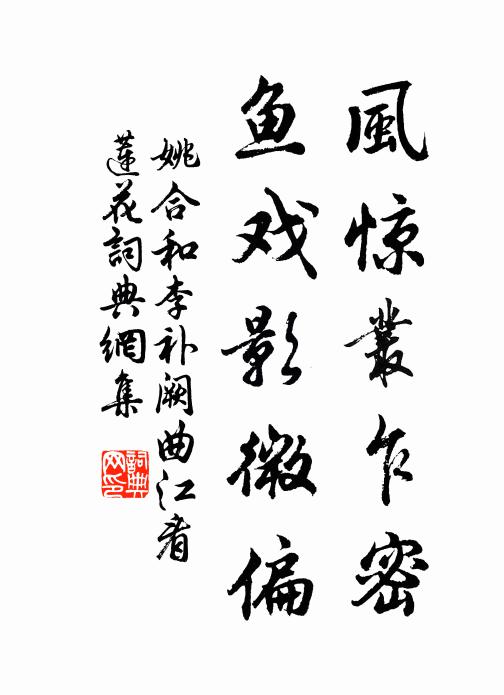 風惊叢乍密
鱼戏影微偏
姚合和李补阙曲江看
蓮花詞典網集
詞典网印